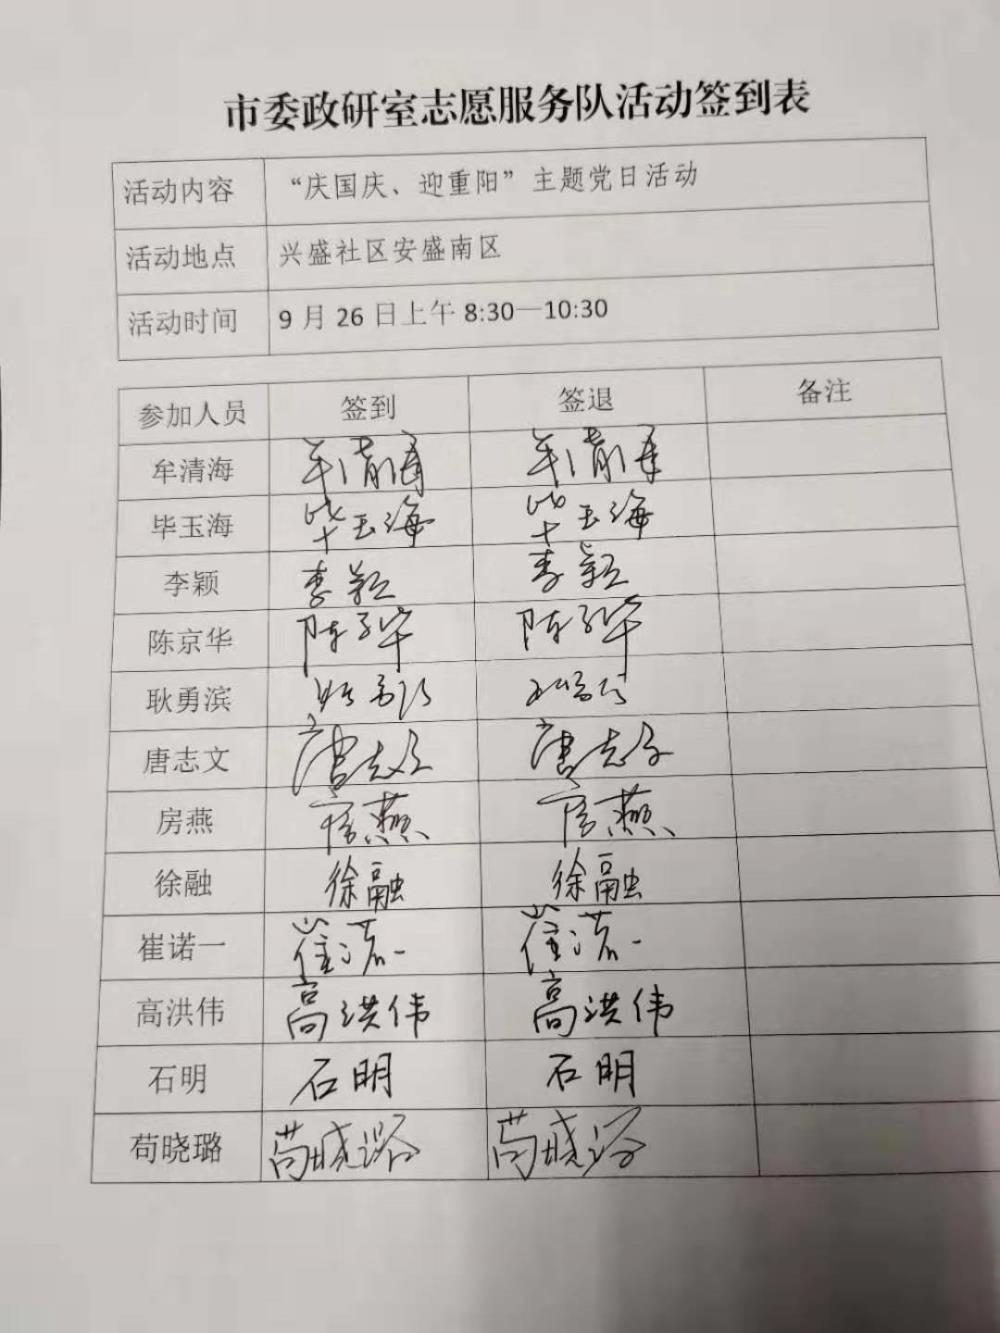 市委政研室志愿服务队活动签到表
活动内容 “庆国庆、迎重阳”主题党日活动
活动地点 兴盛社区安盛南区
活动时间 9月26日上午8:30—10:30
参加人员 签到 签退 备注
牟清海 牟清海 牟清海
毕玉海 毕玉海 毕玉海
李颖 李颖 李颖
陈京华 陈京华 陈京华
耿勇滨
唐志文 唐志文 唐志文
房燕 房燕 房燕
徐融 徐融 徐融
崔诺一 崔诺一 崔诺一
高洪伟 高洪伟 高洪伟
石明 石明 石明
苟晓璐 苟晓璐 苟晓璐